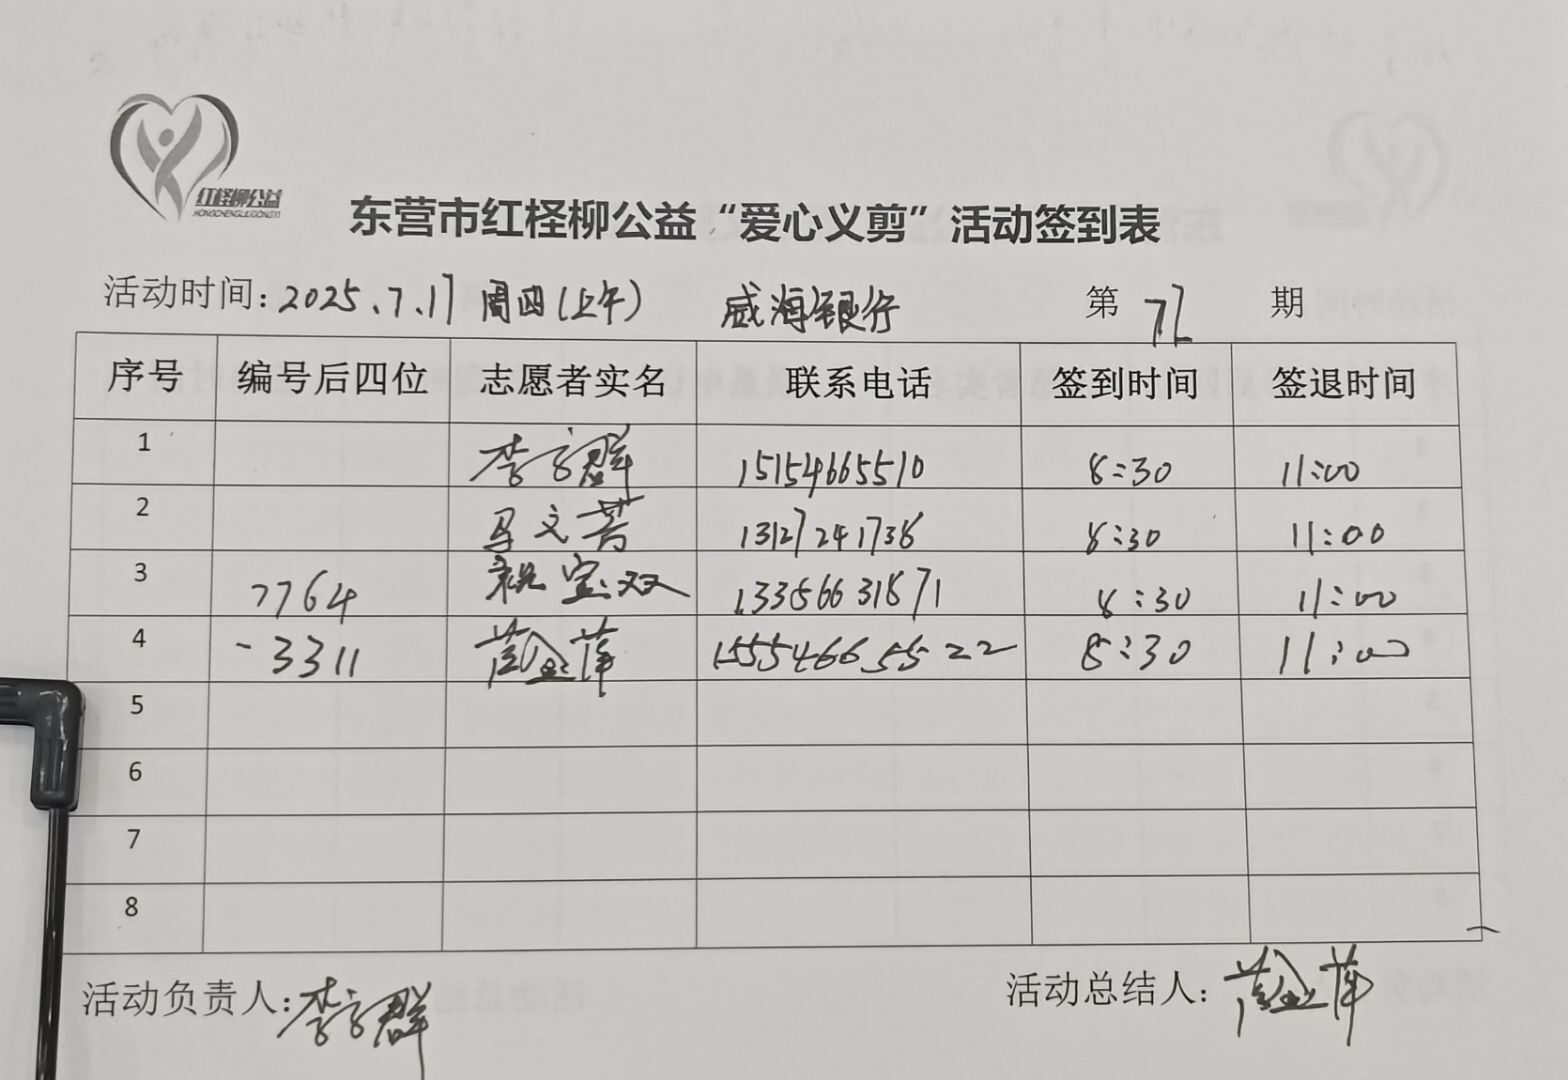 红柽柳公益
HONGCHENGLIUGONGYI
东营市红柽柳公益“爱心义剪”活动签到表
活动时间：2025.7.17 周四(上午) 威海银行 第 72 期
序号 编号后四位 志愿者实名 联系电话 签到时间 签退时间
1 李 群 15154665510 8:30 11:00
2 马文芳 13127241738 8:30 11:00
3 7764 祝宝双 13356631871 8:30 11:00
4 -3311 萍 15554665522 8:30 11:00
5
6
7
8
活动负责人：李 群 活动总结人： 萍